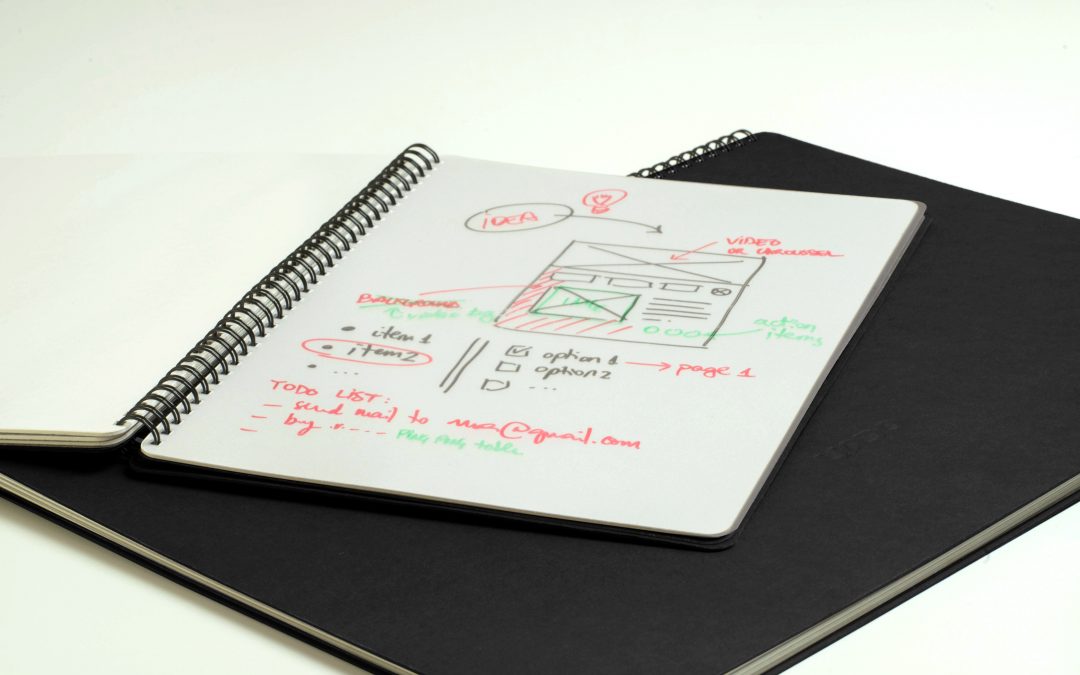 iDEA
ViDEO
OR CAROUSEL
BACKGROUND
action
items
item 1
item 2
...
option 1 → page 1
option 2
...
TODO LIST:
— send mail to @gmail.com
— buy ..----- PING PONG table
—